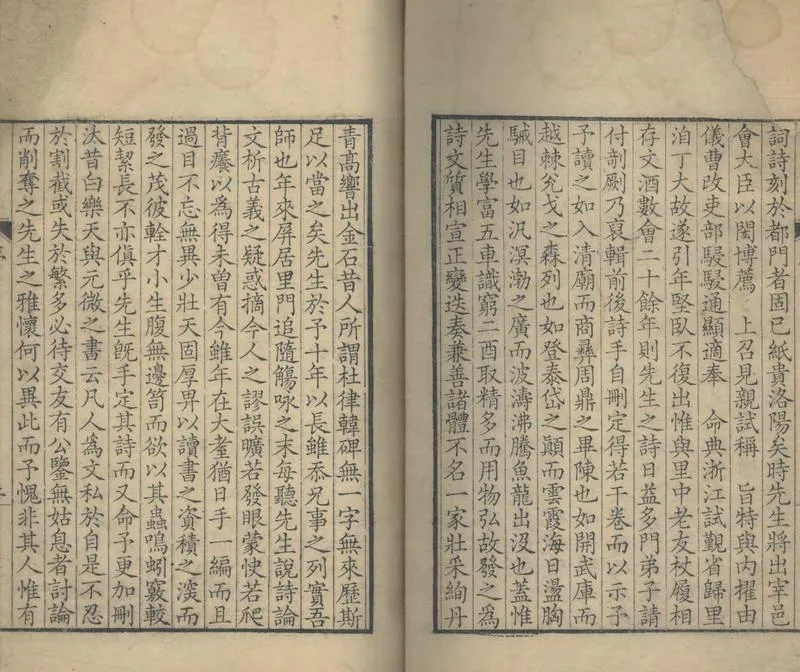 詞詩刻於都門者固已紙貴洛陽矣時先生將出宰邑
會大臣以閎博薦　上召見親試稱　旨特與內擢由
儀曹改吏部駸駸通顯適奉　命典浙江試覲省歸里
洎丁大故遂引年堅臥不復出惟與里中老友杖履相
存文酒數會二十餘年則先生之詩日益多門弟子請
付剞劂乃裒輯前後詩手自刪定得若干卷而以示予
予讀之如入清廟而商彝周鼎之畢陳也如開武庫而
越棘兊戈之森列也如登泰岱之顚而雲霞海日盪胸
駴目也如汎溟渤之廣而波濤沸騰魚龍出沒也蓋惟
先生學富五車識窮二酉取精多而用物弘故發之爲
詩文質相宣正變迭奏兼善諸體不名一家壯采絢丹
青髙響出金石昔人所謂杜律韓碑無一字無來歷斯
足以當之矣先生於予十年以長雖忝兄事之列實吾
師也年來屏居里門追隨觴咏之末每聽先生說詩論
文析古義之疑惑摘今人之謬誤曠若發眼蒙快若爬
背癢以爲得未曾有今雖年在大耋猶日手一編而且
過目不忘無異少壯天固厚畀以讀書之資積之深而
發之茂彼輇才小生腹無邊笥而欲以其蟲鳴蚓竅較
短絜長不亦傎乎先生旣手定其詩而又命予更加刪
汰昔白樂天與元微之書云凡人爲文私於自是不忍
於割截或失於繁多必待交友有公鑒無姑息者討論
而削奪之先生之雅懷何以異此而予愧非其人惟有